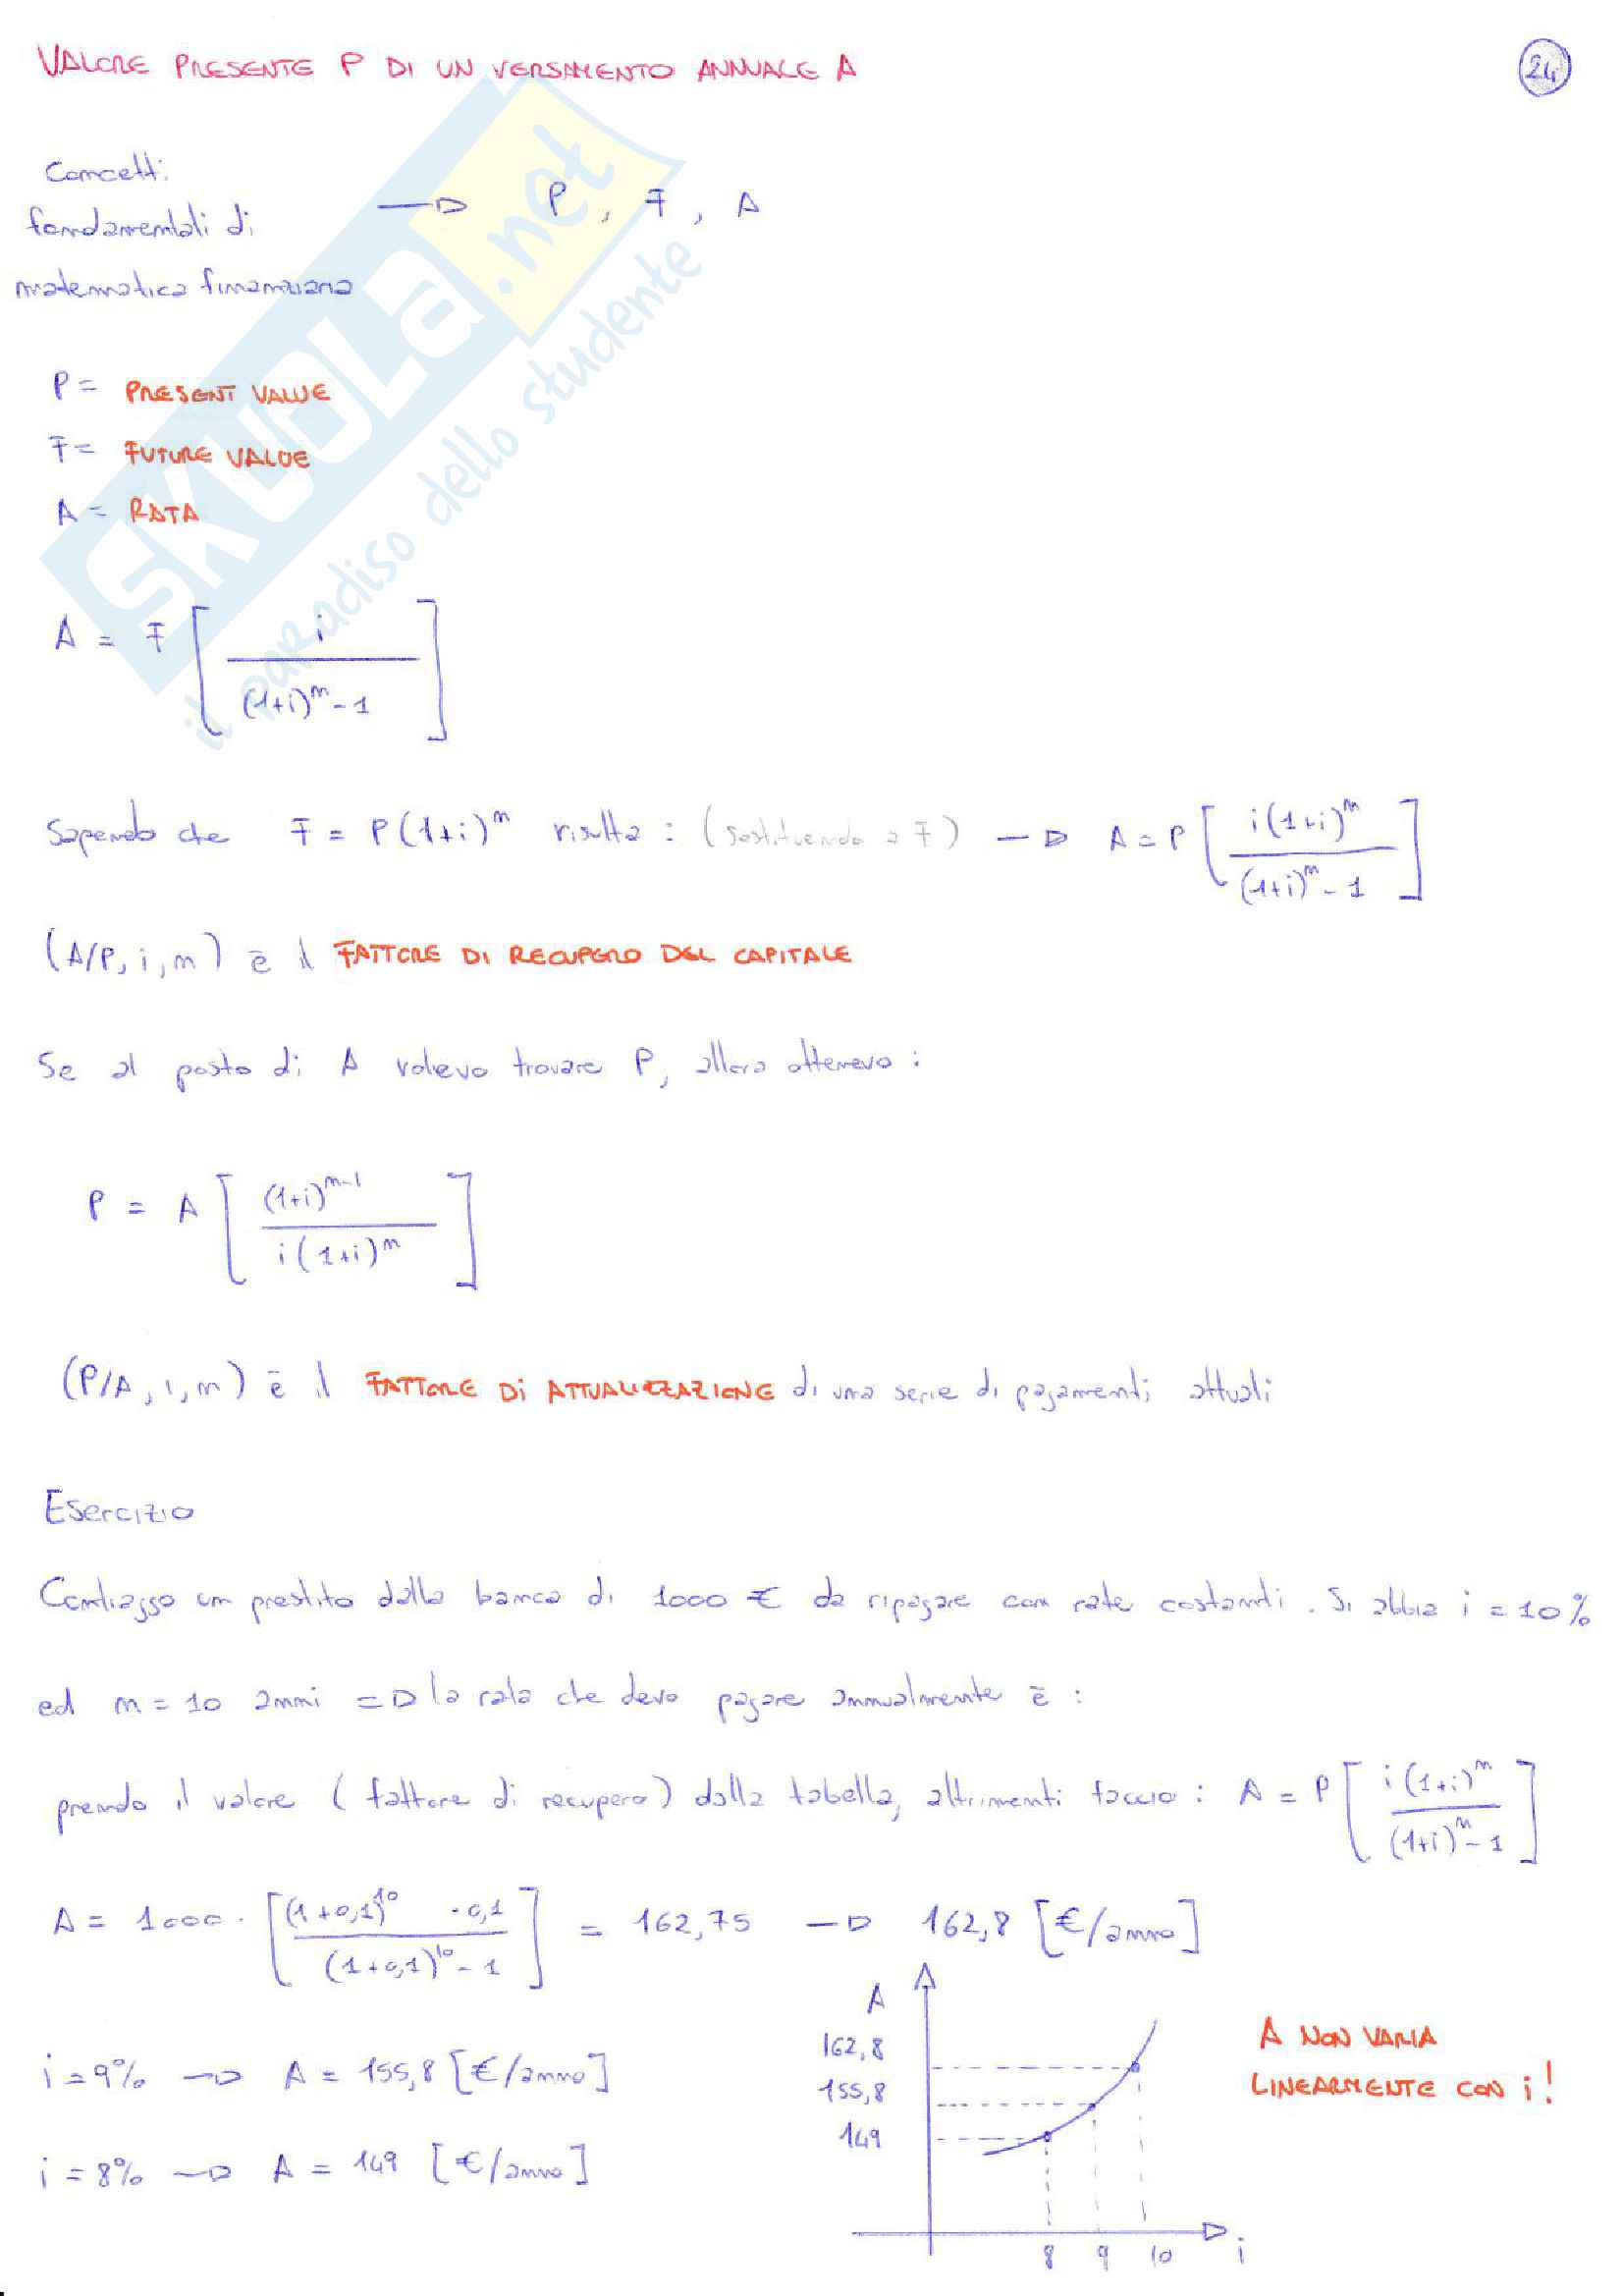 VALORE PRESENTE P DI UN VERSAMENTO ANNUALE A
24
Concetti
fondamentali di —▷ P, F, A
matematica finanziaria
SKUOLA.net
il paradiso dello studente
P = PRESENT VALUE
F = FUTURE VALUE
A = RATA
A = F [ i / ((1+i)^n - 1) ]
Sapendo che F = P(1+i)^n risulta : (sostituendo a F) —▷ A = P [ i(1+i)^n / ((1+i)^n - 1) ]
(A/P, i, n) è il FATTORE DI RECUPERO DEL CAPITALE
Se al posto di A volevo trovare P, allora ottenevo :
P = A [ (1+i)^n-1 / i(1+i)^n ]
(P/A, i, n) è il FATTORE DI ATTUALIZZAZIONE di una serie di pagamenti attuali
Esercizio
Contraggo un prestito dalla banca di 1000 € da ripagare con rate costanti. Si abbia i = 10%
ed n = 10 anni =▷ la rata che devo pagare annualmente è :
prendo il valore (fattore di recupero) dalla tabella, altrimenti faccio : A = P [ i(1+i)^n / ((1+i)^n - 1) ]
A = 1000 · [ (1+0,1)^10 · 0,1 / ((1+0,1)^10 - 1) ] = 162,75 —▷ 162,8 [€/anno]
i = 9% —▷ A = 155,8 [€/anno]
i = 8% —▷ A = 149 [€/anno]
A
162,8
155,8
149
8 9 10 i
A NON VARIA
LINEARMENTE CON i!